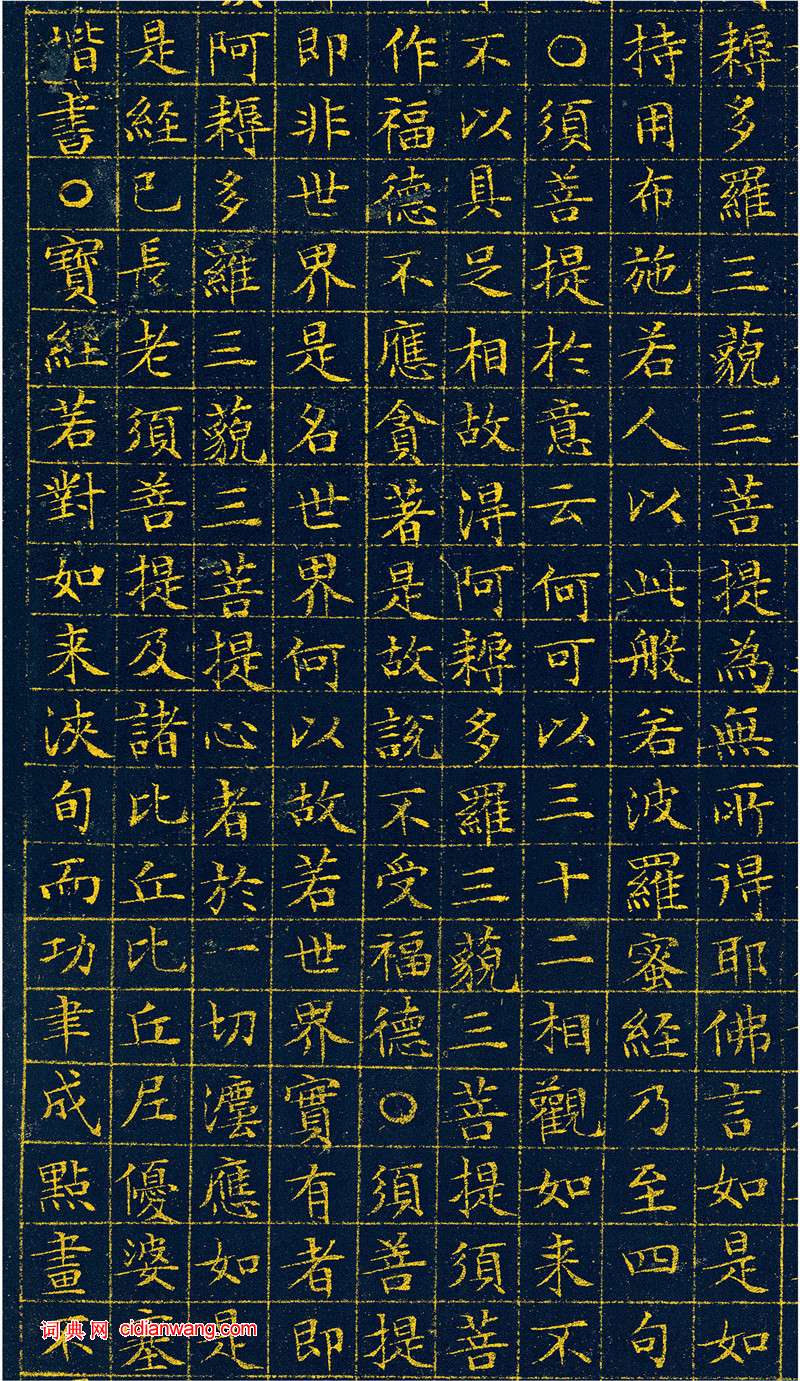 耨多羅三藐三菩提為無所得耶佛言如是如
持用布施若人以此般若波羅蜜經乃至四句
〇須善提於意云何可以三十二相觀如来不
不以具足相故得阿耨多羅三藐三菩提須菩
作福德不應貪著是故說不受福德〇須善提
即非世界是名世界何以故若世界實有者即
阿耨多羅三藐三菩提心者於一切灋應如是
是經已長老須善提及諸比丘比丘尼優婆塞
揩書〇寶經若對如来浹旬而功聿成點畫不
词典网 cidianwang.com